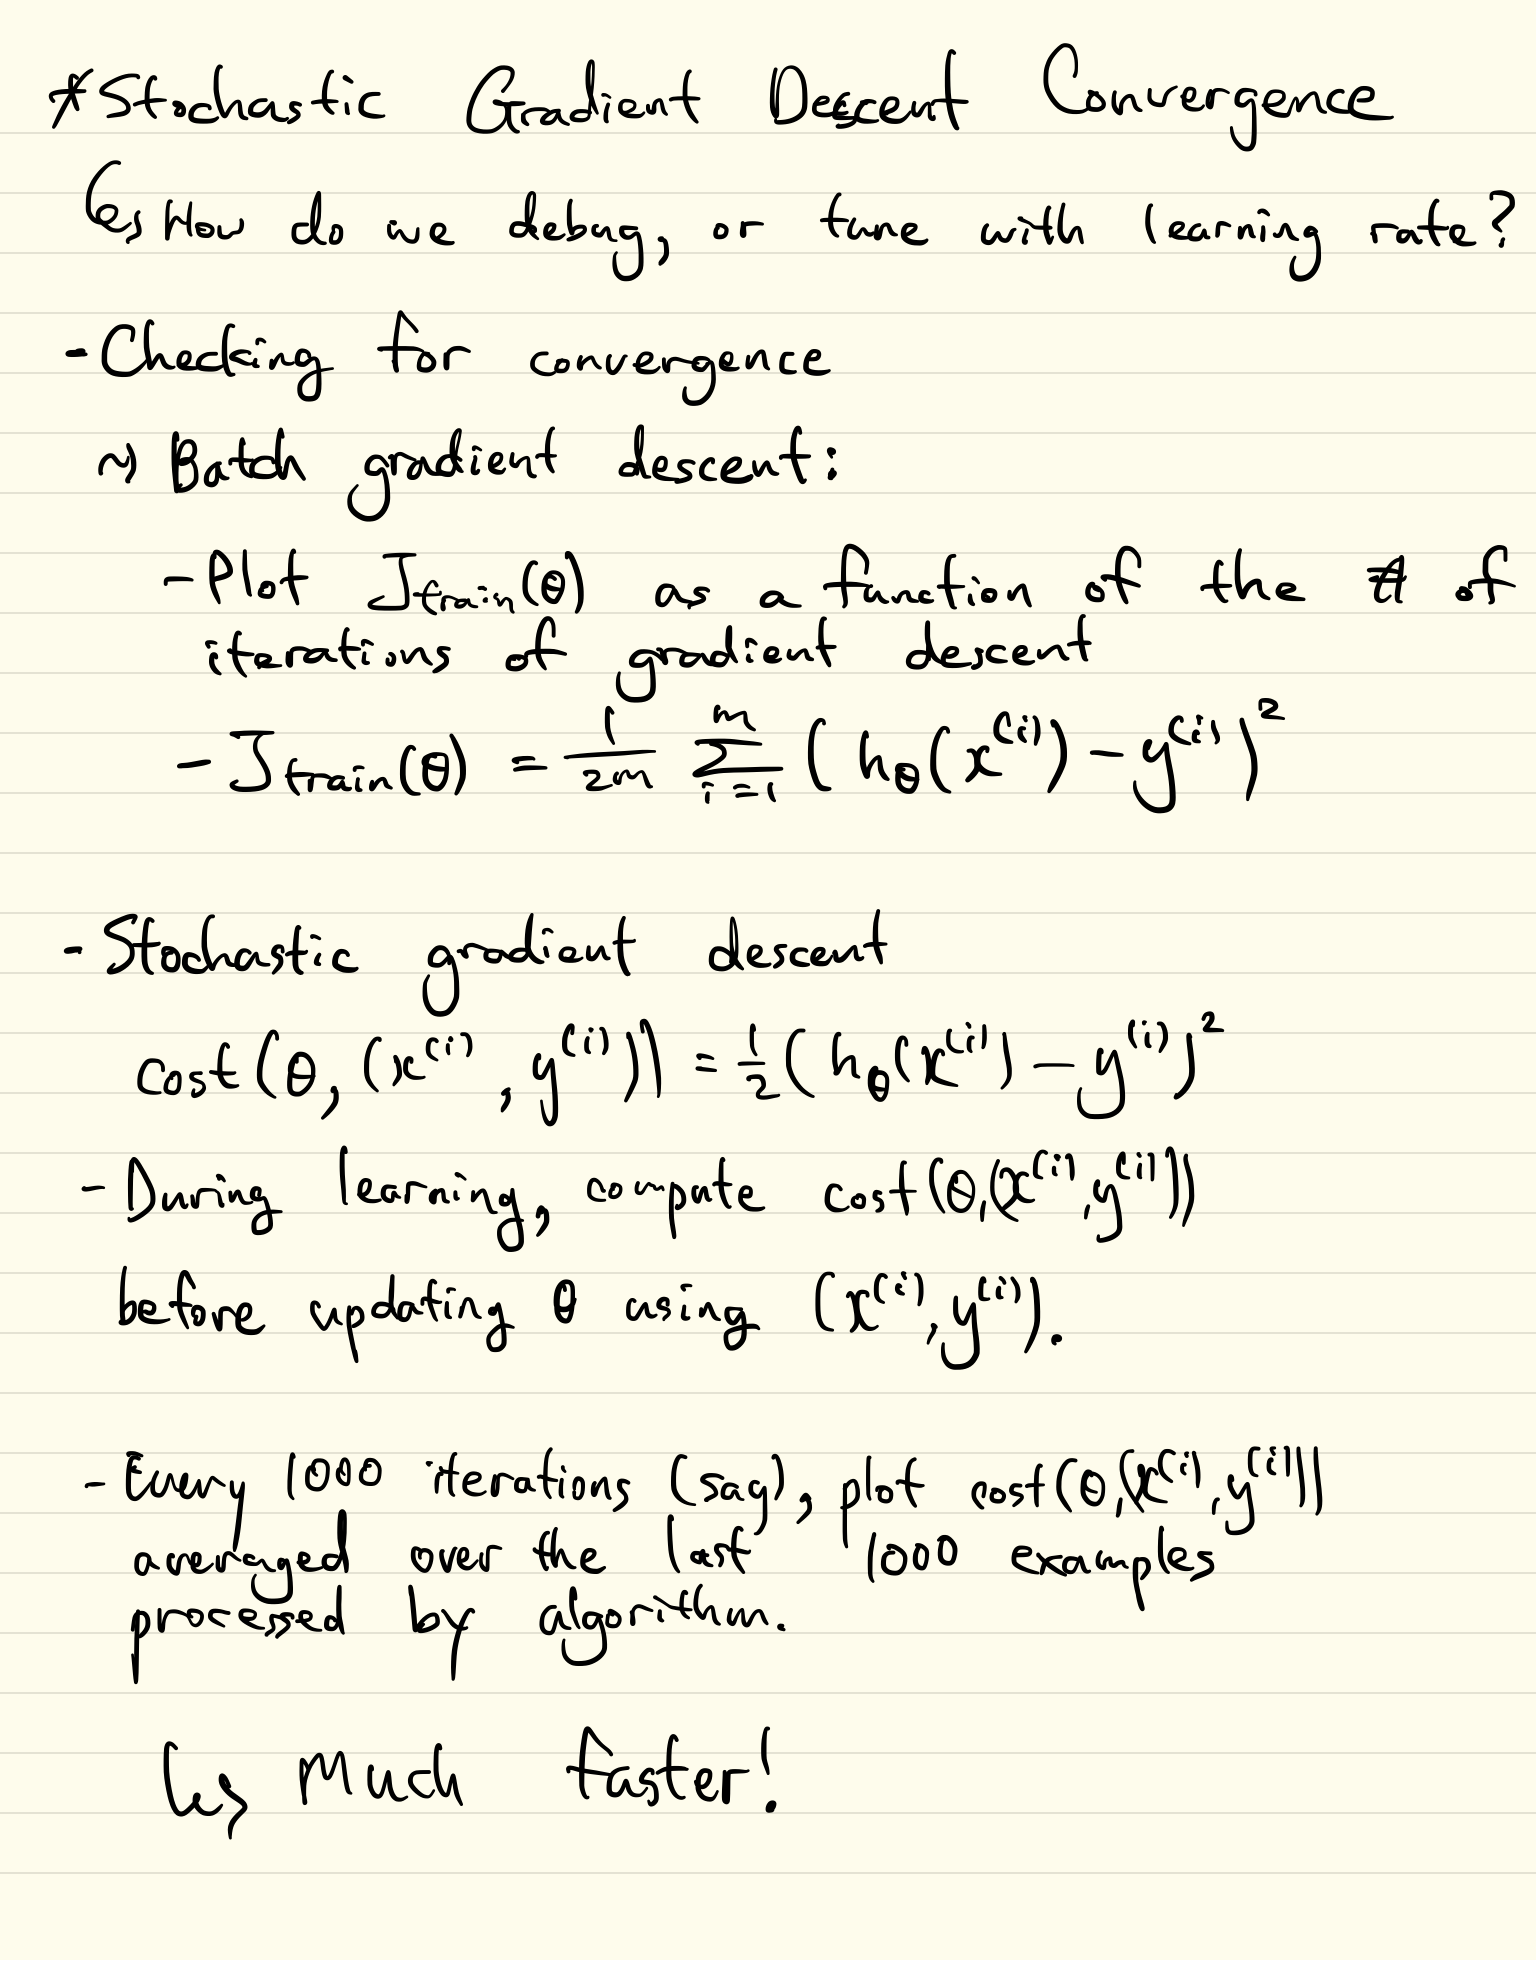 *Stochastic Gradient Descent Convergence
↳ How do we debug, or tune with learning rate?
- Checking for convergence
~) Batch gradient descent:
- Plot J_train(θ) as a function of the # of
iterations of gradient descent
- J_train(θ) = 1/2m Σ_{i=1}^{m} (h_θ(x^(i)) - y^(i))^2
- Stochastic gradient descent
cost(θ, (x^(i), y^(i))) = 1/2 (h_θ(x^(i)) - y^(i))^2
- During learning, compute cost(θ,(x^(i),y^(i)))
before updating θ using (x^(i), y^(i)).
- Every 1000 iterations (say), plot cost(θ,(x^(i),y^(i)))
averaged over the last 1000 examples
processed by algorithm.
↳ Much faster!